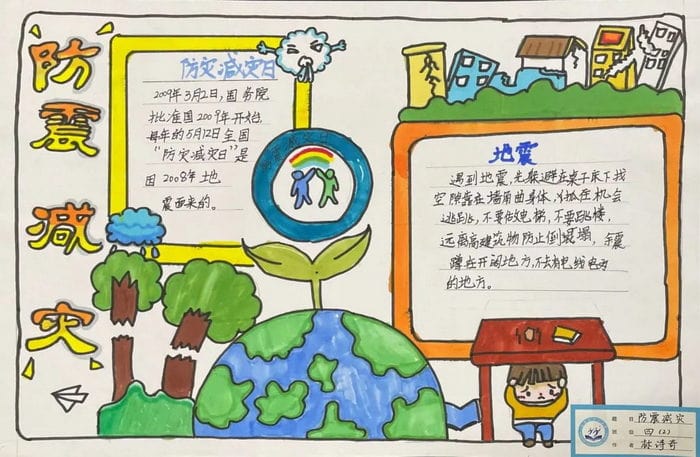 防震减灾
防灾减灾日
2009年3月2日,国务院
批准国2009年开始
每年的5月12日全国
"防灾减灾日"是
因2008年地
震而来的。
防震减灾日
地震
遇到地震,先躲避在桌子床下找
空隙靠在墙角曲身体,
逃跑,不要做电梯,不要跳楼,
远离高建筑物防止倒塌,余震
蹲在开阔地方,不去有电线
的地方。
题目 防震减灾
班级 四(2)
作者 林诗奇